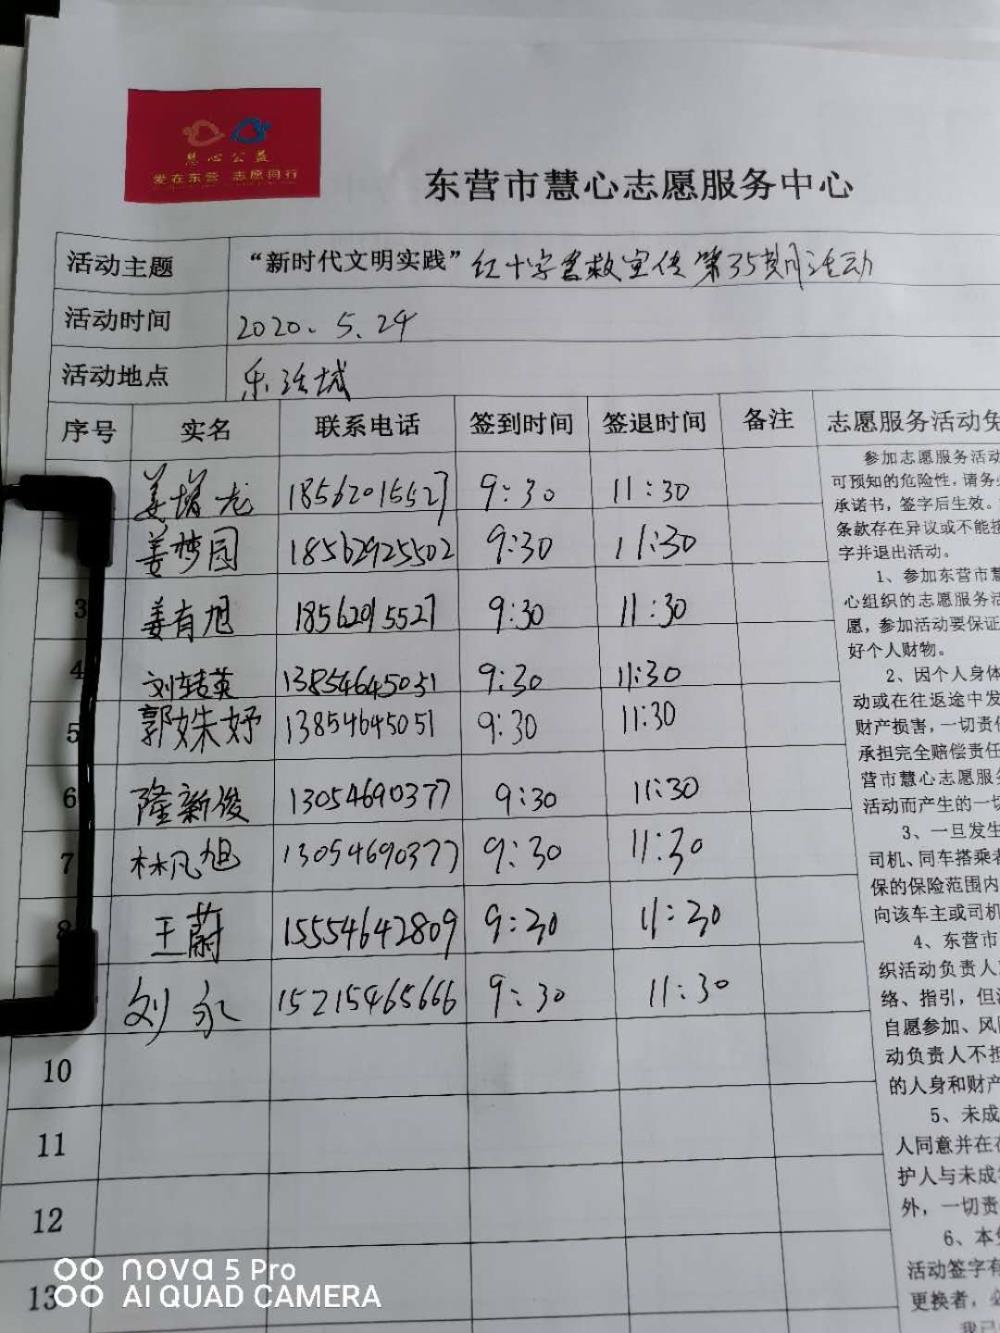 慧心公益
爱在东营 志愿同行
东营市慧心志愿服务中心
活动主题 “新时代文明实践”红十字急救宣传第35期活动
活动时间 2020.5.24
活动地点 乐活城
序号 实名 联系电话 签到时间 签退时间 备注 志愿服务活动免
姜增龙 18562015527 9:30 11:30
姜梦园 18562925502 9:30 11:30
3 姜有旭 18562015527 9:30 11:30
4 刘转英 13854645051 9:30 11:30
5 郭姝妤 13854645051 9:30 11:30
6 隆新俊 13054690377 9:30 11:30
7 林凡旭 13054690377 9:30 11:30
8 王蔚 15554642809 9:30 11:30
刘永 15215465666 9:30 11:30
10
11
12
13
参加志愿服务活动
可预知的危险性,请务必
承诺书,签字后生效。
条款存在异议或不能接
字并退出活动。
1、参加东营市慧
心组织的志愿服务活
愿,参加活动要保证
好个人财物。
2、因个人身体
动或在往返途中发
财产损害,一切责任
承担完全赔偿责任
营市慧心志愿服务
活动而产生的一切
3、一旦发生
司机、同车搭乘者
保的保险范围内
向该车主或司机
4、东营市
织活动负责人
络、指引,但
自愿参加、风
动负责人不担
的人身和财产
5、未成
人同意并在
护人与未成
外,一切责
6、本
活动签字有
更换者,必
我已
nova 5 Pro
AI QUAD CAMERA